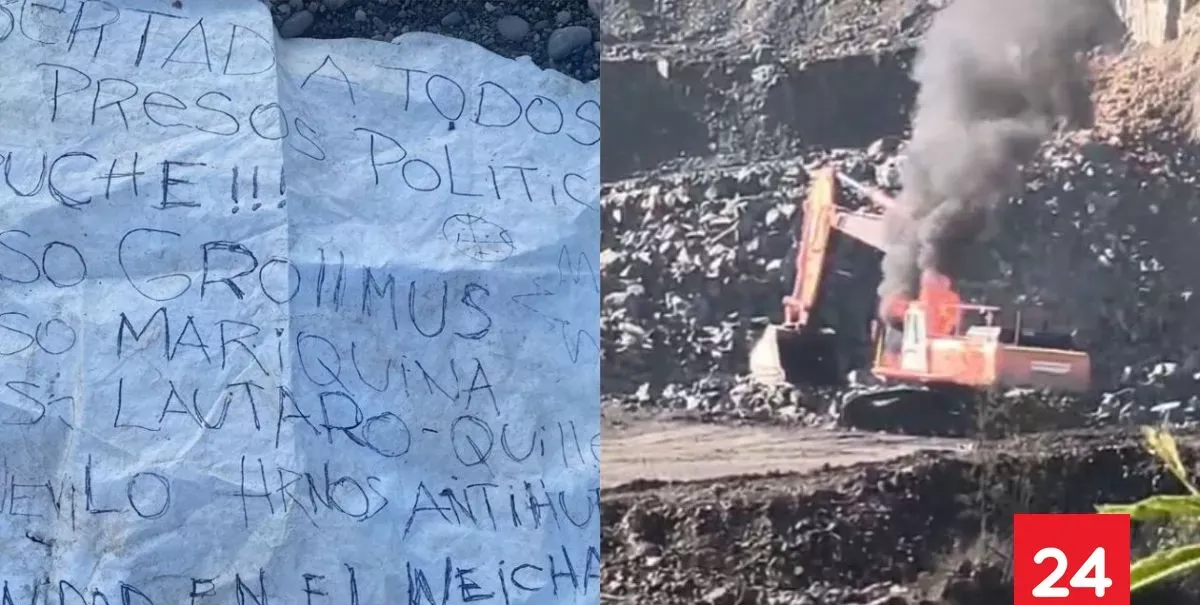 BERTAD A TODOS
PRESOS POLITIC
PUCHE !!!
SO GROllMUS
SO MARiQUiNA
S: LAUTARO-QUill
NEViLO HRNOS ANTiHU
EN El WEiCHA
24